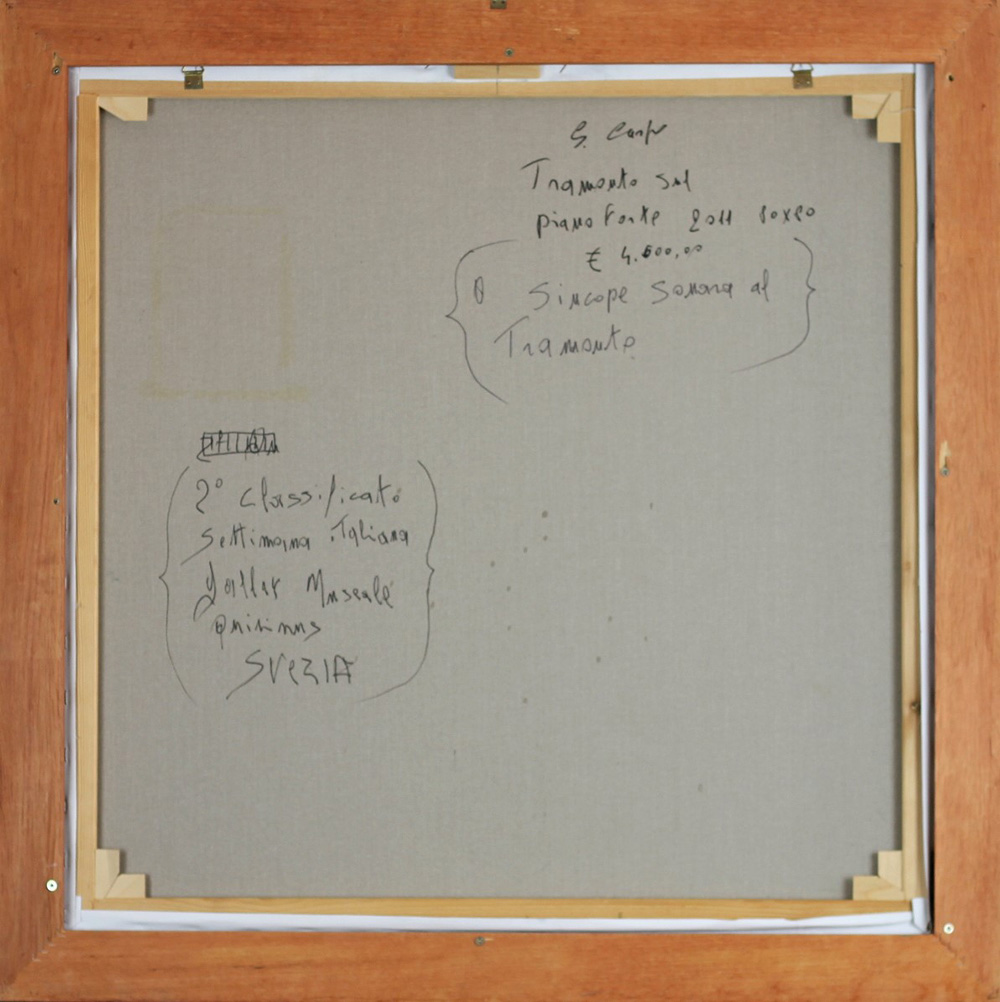 Tramonto sul
pianoforte 2011 80x80
€ 4.500,00
O Sincope Sonora al
Tramonto
2° classificato
Settimana italiana
Museale
SVEZIA